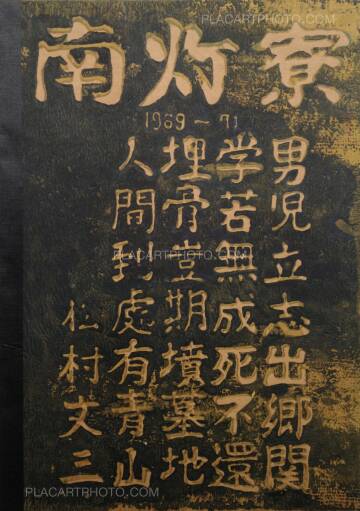 PLACARTPHOTO.COM
南灯寮
1969～71
男児立志出郷関
学若無成死不還
埋骨豈期墳墓地
人間到處有青山
仁村文三
PLACARTPHOTO.COM
PLACARTPHOTO.COM